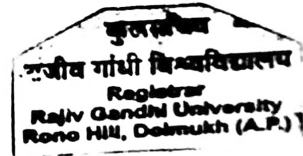 कुलसचिव
राजीव गांधी विश्वविद्यालय
Registrar
Rajiv Gandhi University
Rono Hill, Doimukh (A.P.)